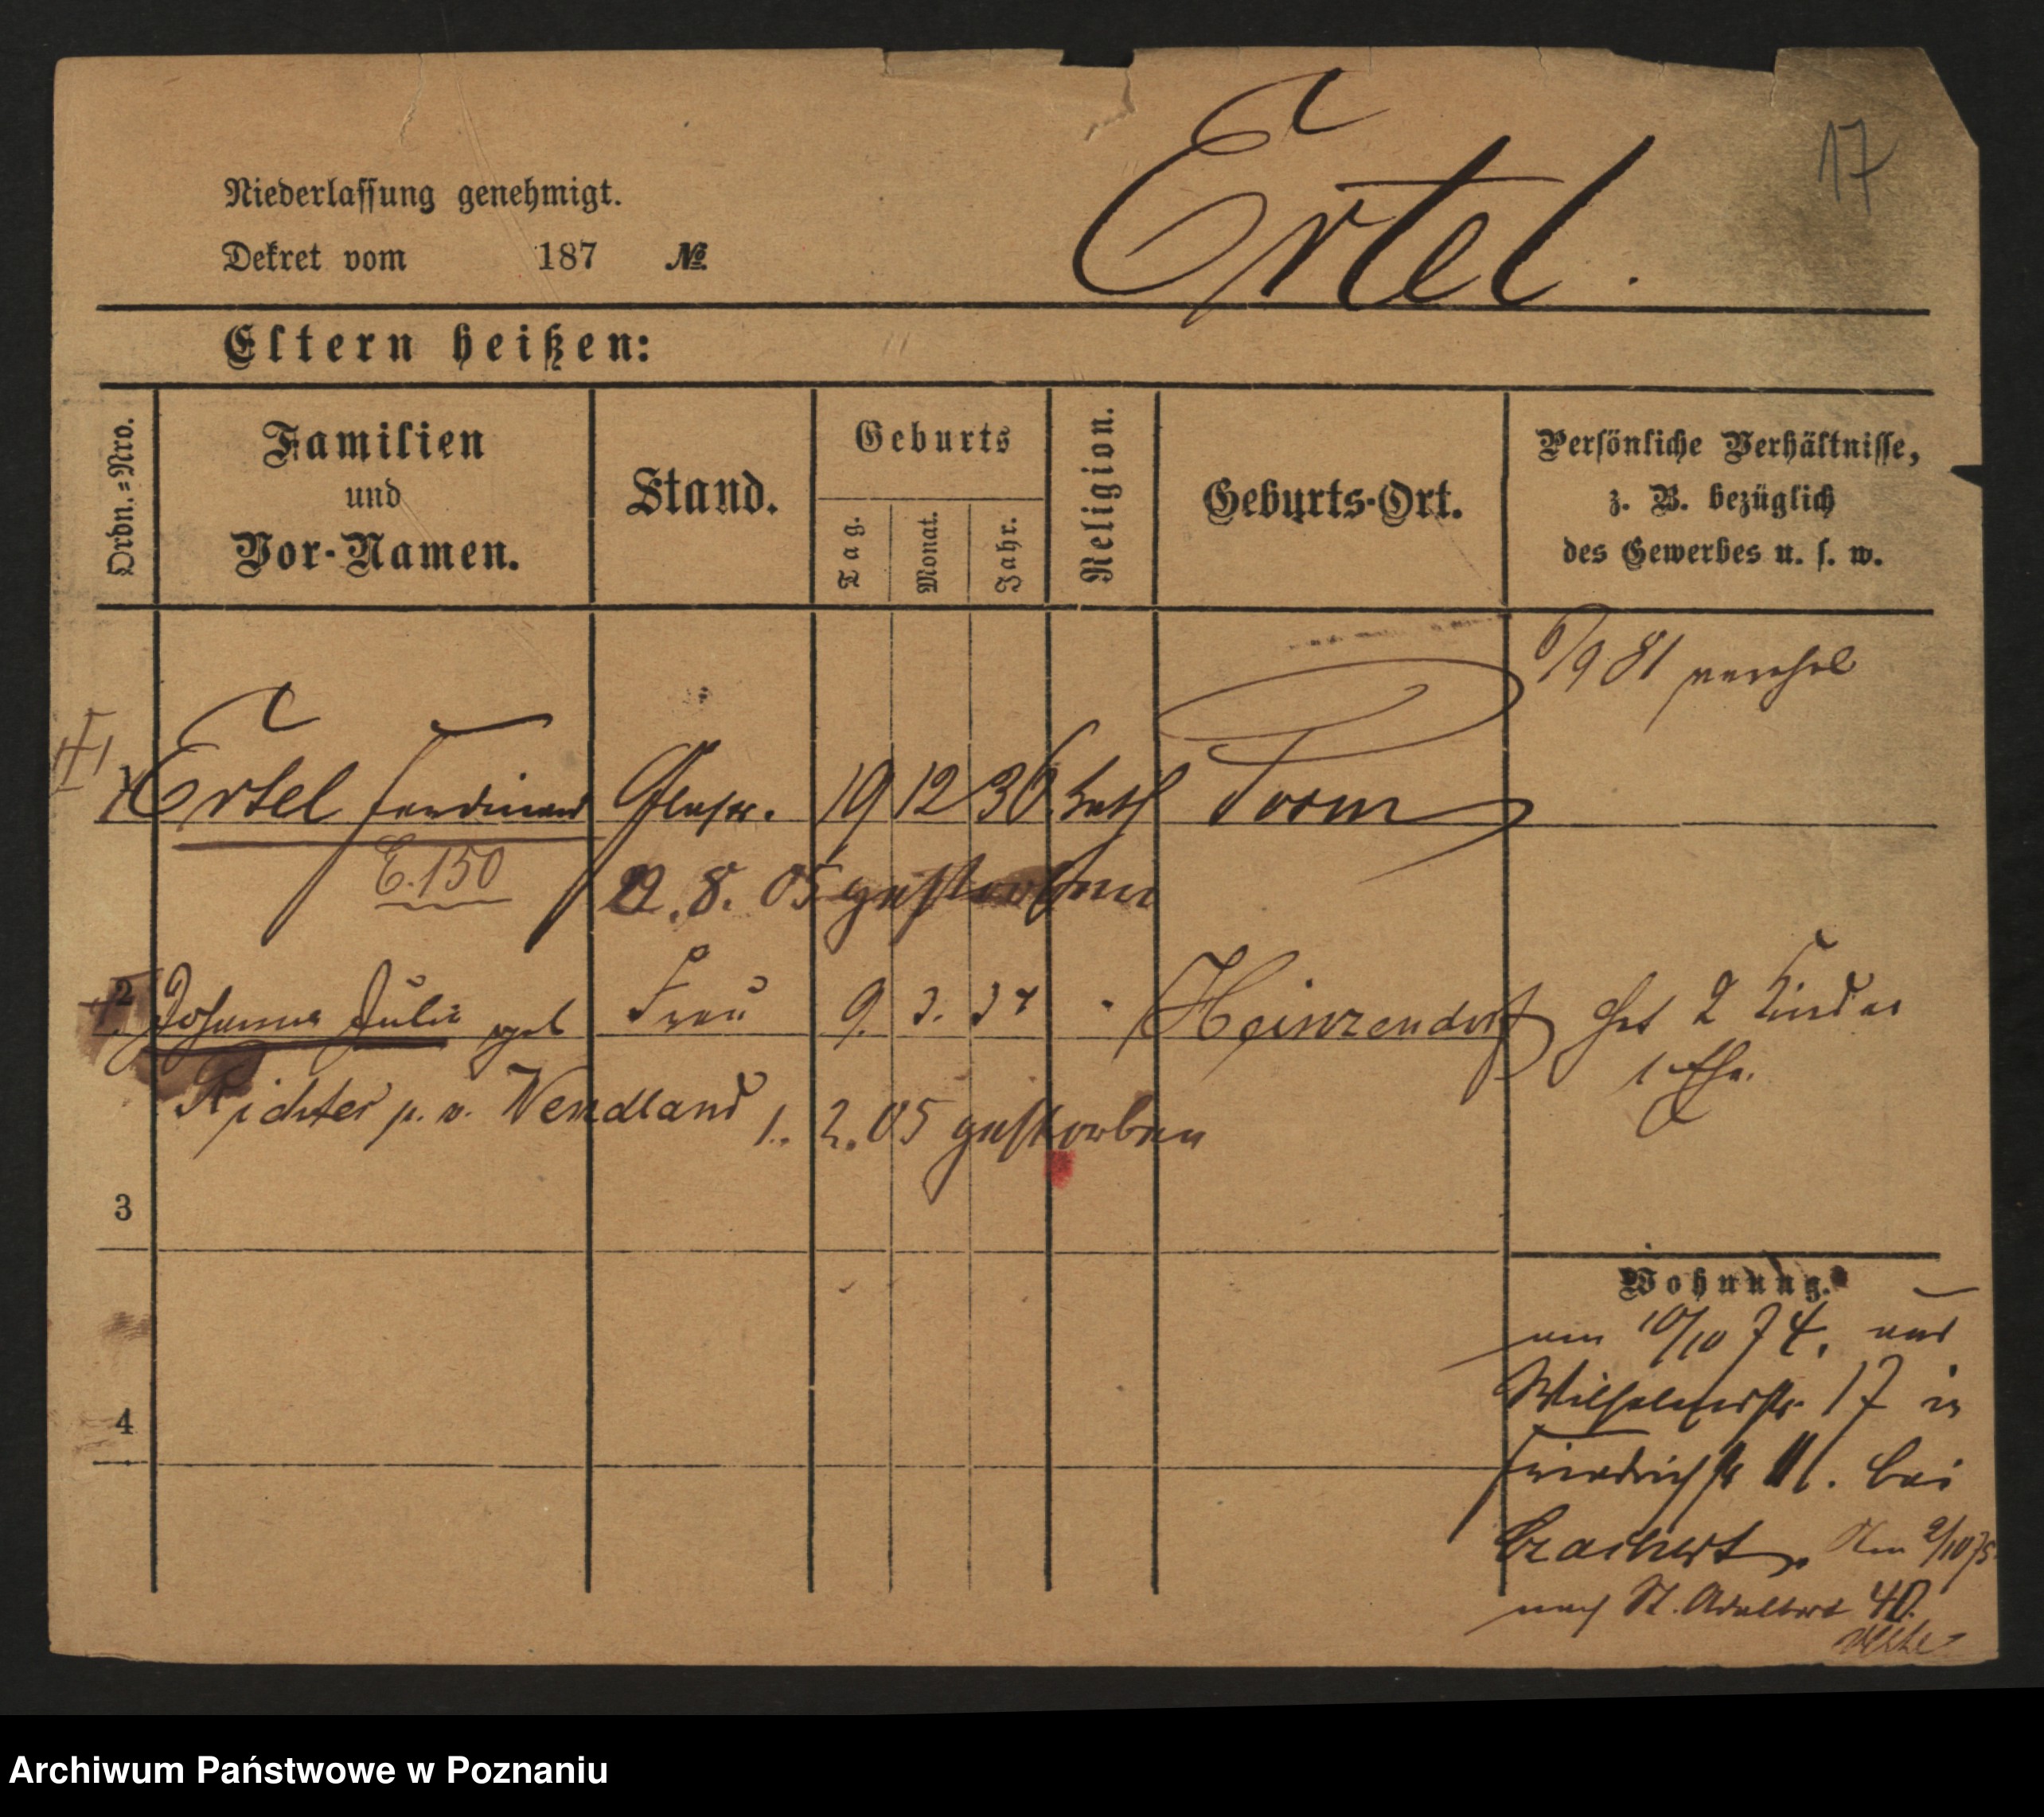 17
Niederlassung genehmigt.
Dekret vom 187 №
Ertel.
Eltern heißen:
Ordn.=Nro.
Familien
und
Vor-Namen.
Stand.
Geburts
Tag.
Monat.
Jahr.
Religion.
Geburts-Ort.
Persönliche Verhältnisse,
z. B. bezüglich
des Gewerbes u. s. w.
6/9 81
1 Ertel Ferdinand Glaser. 19 12 36 kath Posen
E.150
22. 8. 05 gestorben
2 Johanna Julie geb Frau 9. 3. 37 " Heinzendorf hat 2 Kinder
1 Ehe.
Richter p. v. Wendland 1. 2. 05 gestorben
3
4
Wohnung.
am 10/10 74. aus
Wilhelmstr. 17 in
Friedrichstr 11. bei
Am 2/10 75
nach St. Adalbert 40.
Archiwum Państwowe w Poznaniu